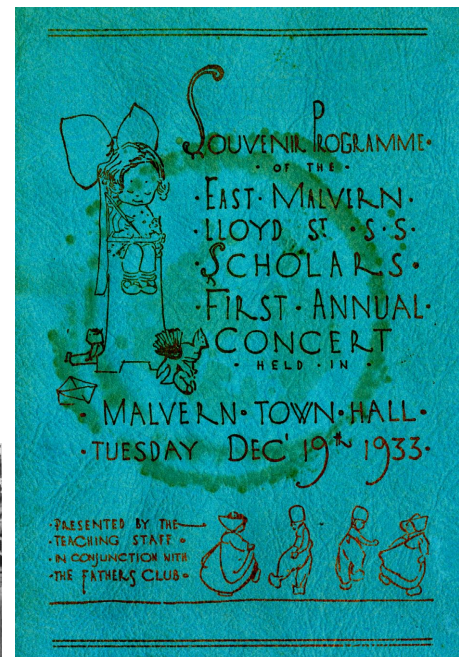 SOUVENIR PROGRAMME·
· OF THE ·
· EAST · MALVERN ·
· LLOYD ST · S · S ·
· SCHOLARS ·
· FIRST · ANNUAL ·
CONCERT
· HELD · IN ·
· MALVERN · TOWN · HALL ·
· TUESDAY DEC' 19th 1933 ·
· PRESENTED BY THE
· TEACHING STAFF ·
· IN CONJUNCTION WITH
· THE FATHERS CLUB ·